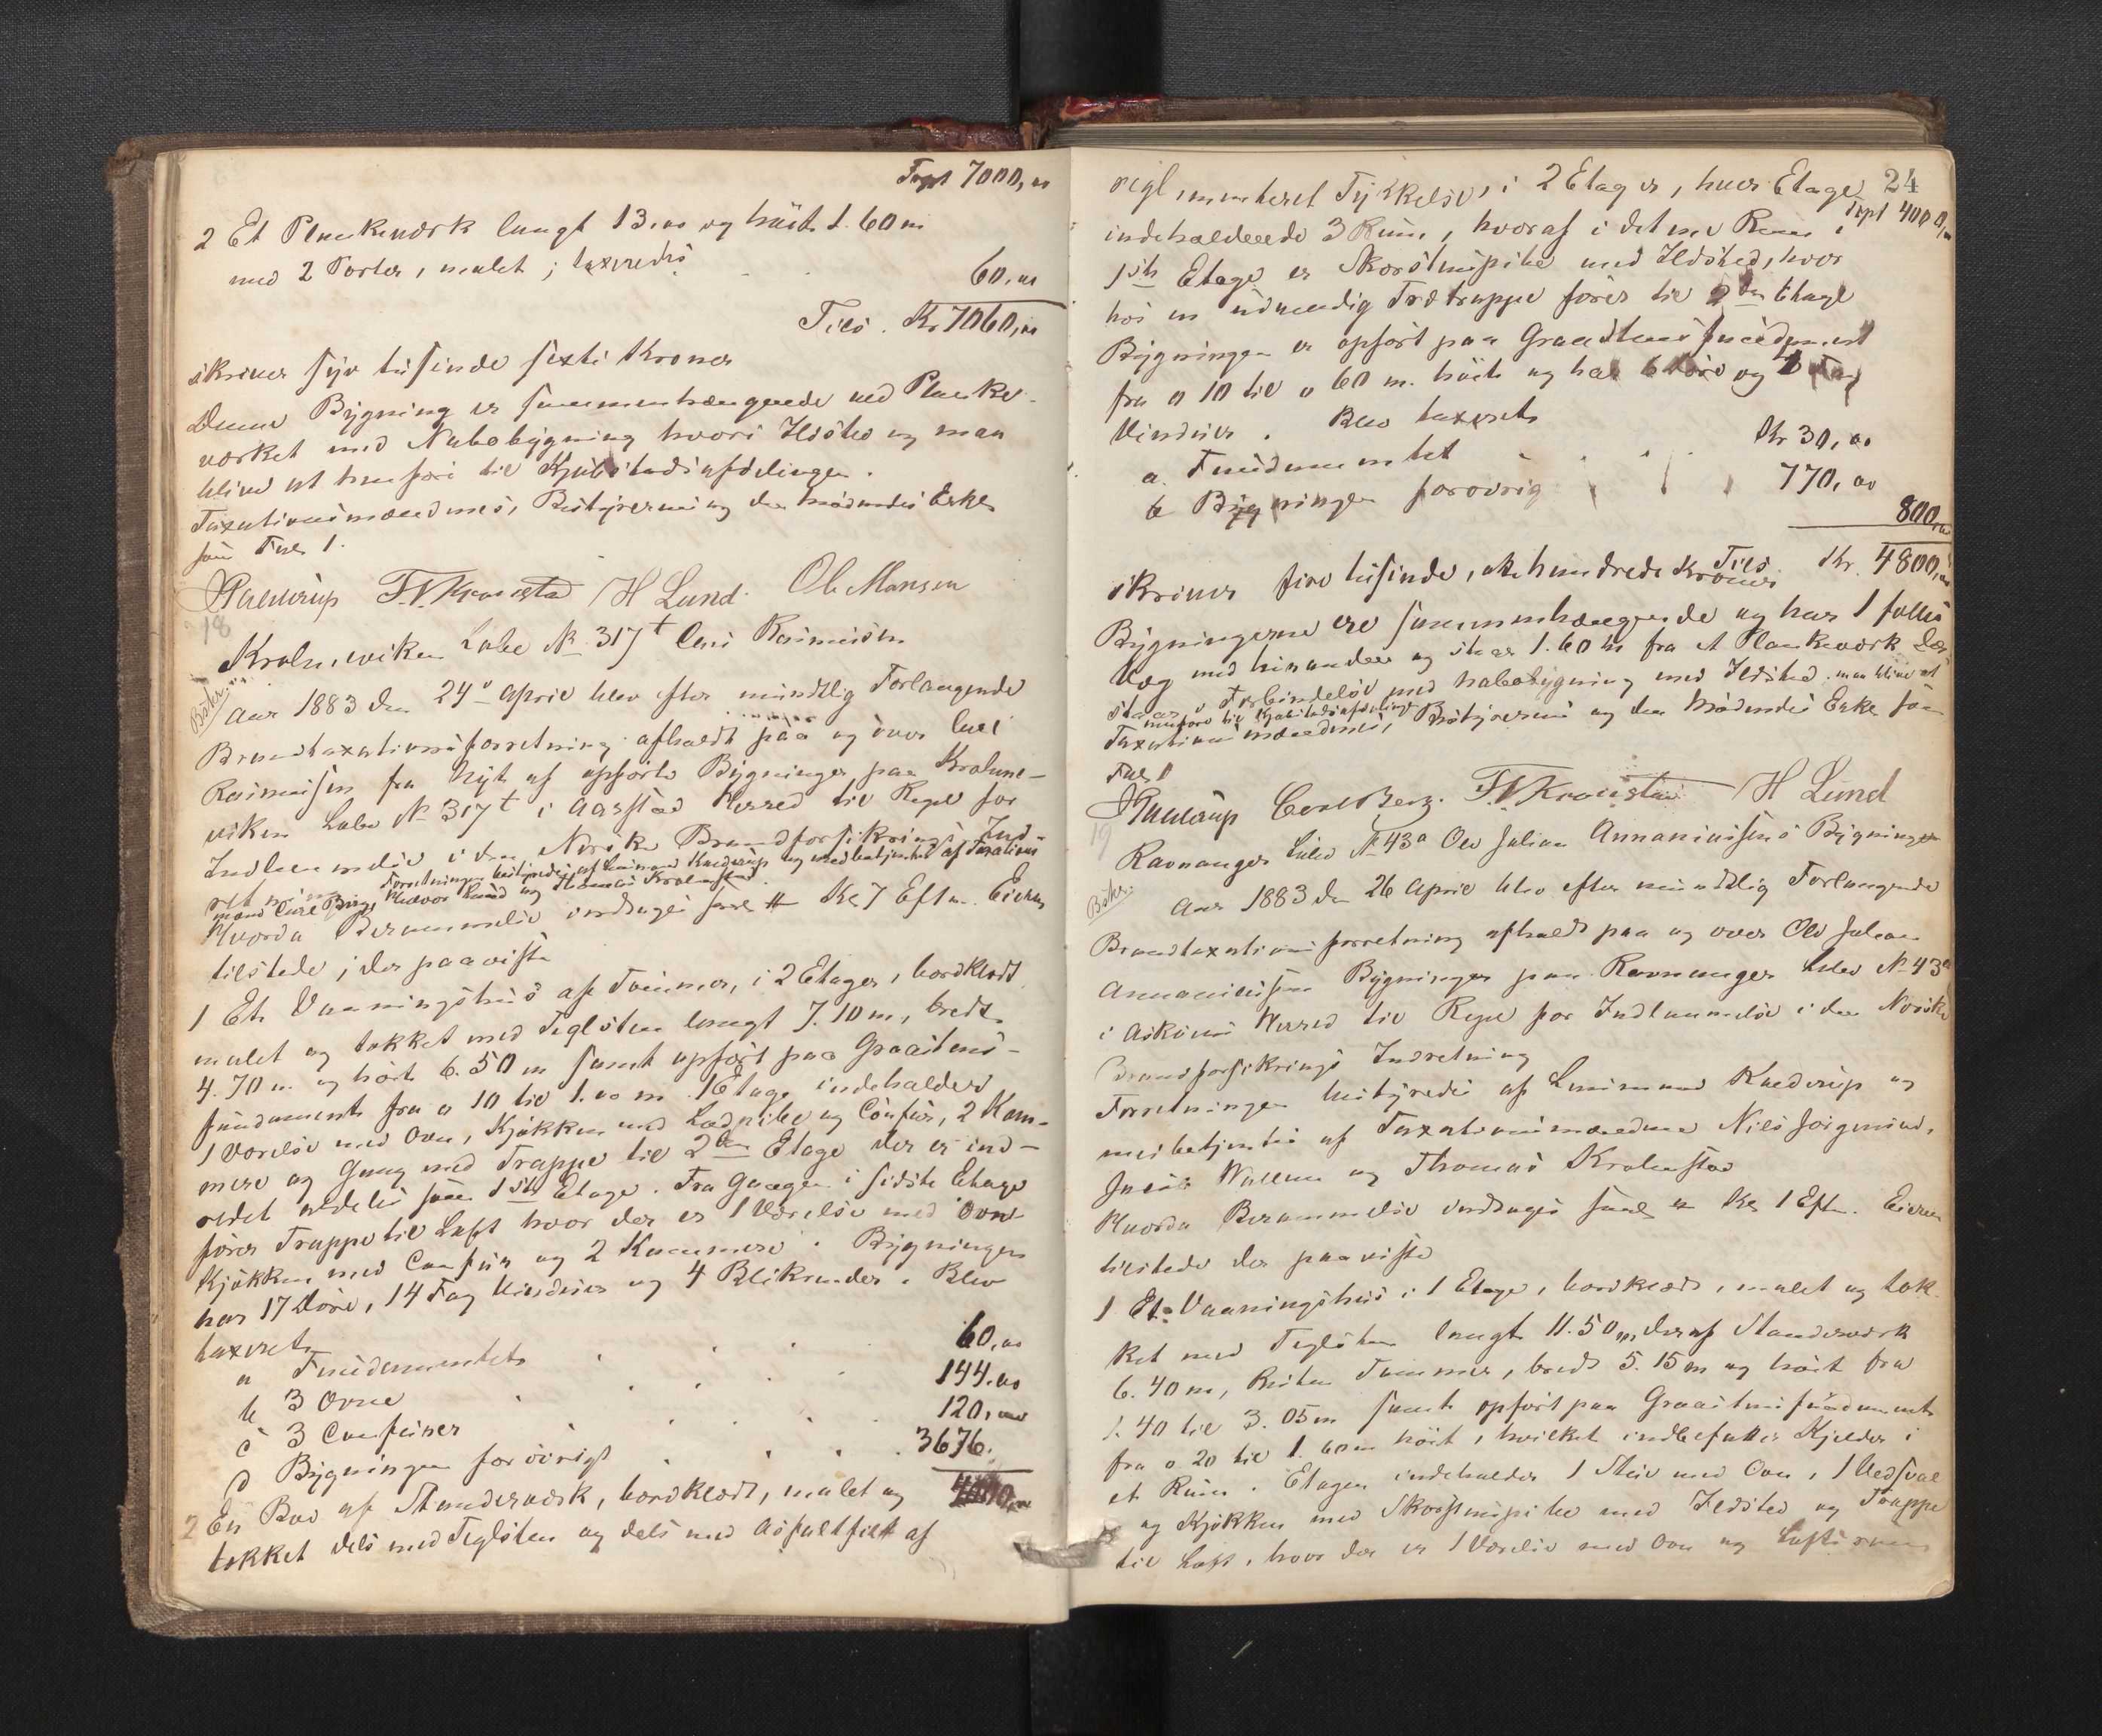 Trpt 7000,00
2 Et Plankeværk langt 13,00 og höit 1.60 m
med 2 Porter, malet; taxeredes 60,00
Tils. Kr 7060,00
skriver syv tusinde sexti Kroner
Denne Bygning er sammenhængende ved Planke-
værket med Nabobygning hvori Ildsted og man
blive at henföre til Kjöbstadsafdelingen.
Taxationsmændenes, Bestyrerens og den mödendes Eske
som Fol 1.
Kaurup T. N. Kronstad H Lund Ole Monsen
18
Kralneviken Löbe No 317t Carl Rasmussen
Bökr.
Aar 1883 den 24de April blev efter mündtlig Forlangende
Brandtaxationsforretning afholdt paa og over Carl
Rasmussen fra Nyt af opförte Bygninger paa Kralne-
viken Löbe No 317t i Aarstad Herred til Regel for
Indlemmelse i den Norske Brandforsikrings Ind-
retning Forretningen bestyredes af Lensmand Kaurup og medbetjentes af Taxations
mænd Carl Berg, Halvor Lund og Thomas Kronstad.
Hvorda Berammelse indtages Kl 7 Eftm. Eieren
tilstede, der paaviste
1 Et Vaaningshus af Tömmer, i 2 Etager, bordklædt
malet og tækket med Teglsten langt 7.10 m, bredt
4.70 m. og höit 6.50 m samt opfört paa Graastens-
fundament fra 0 10 til 1.00 m. 1 Etage indeholder
1 Værelse med Ovn, Kjökken med Lædpibe og Confür, 2 Kam-
mere og Gang med Trappe til 2den Etage der er ind-
redet aldeles som 1ste Etage. Fra Gangen i sidste Etage
förer Trappe til Loft hvor der er 1 Værelse med Ovn
Kjökken med Confür og 2 Kammere. Bygningen
har 17 Döre, 14 Fag Vinduer og 4 Blikrender. Blev
taxeret
a Fundamentet 60,00
b 3 Ovne 144,00
c 3 Confürer 120,00
d Bygningen forövrigt 3676.
4000,00
2 En Bod af Standerværk, bordklædt, malet og
tækket dels med Teglsten og dels med Asfaltfilt af
24
reglementeret Tykkelse, i 2 Etager, hver Etage Trpt 4000,00
indeholdende 3 Rum, hvoraf i det ene Rum i
1ste Etage er Skorstenspibe med Ildsted, hvor
hos en udvendig Trætrappe förer til 2den Etage
Bygningen er opfört paa Graastensfundament
fra 0 10 til 0 60 m. höit og har 6 Döre og Fag
Vinduer. Blev taxeret
a Fundamentet Kr 30,00
b Bygningen forövrigt 770,00
800,00
Tils. Kr. 4800,00
skriver fire tusinde, otte hundrede Kroner
Bygningerne ere sammenhængende og har 1 fælles
Væg med hinanden og staar 1.60 m fra et Plankeværk der
staar i Forbindelse med Nabobygning med Ildsted, man blive at
henföre til Kjöbstadsafdelingen.
Taxationsmændenes, Bestyrerens og den Mödendes Eske som
Fol 1
Kaurup Carl Berg. T. N. Kronstad H Lund
19
Ravnanger Löbe No 43a Ole Julian Annaniassens Bygninger
Bökr.
Aar 1883 den 26 April blev efter mündtlig Forlangende
Brandtaxationsforretning afholdt paa og over Ole Julian
Annaniassen Bygninger paa Ravnanger Löbe No 43a
i Asköens Herred til Regel for Indlemmelse i den Norske
Brandforsikrings Indretning
Forretningen bestyredes af Lensmand Kaurup og
medbetjentes af Taxationsmændene Nils
og Thomas Kronstad
Hvorda Berammelse indtages Kl 1 Eftm. Eieren
tilstede der paaviste
1 Et Vaaningshus i 1 Etage, bordklædt, malet og tæk-
ket med Teglsten langt 11.50 m, deraf Standerværk
6.40 m, Resten Tömmer, bredt 5.15 m og höit fra
1.40 til 3.05 m samt opfört paa Graastensfundament
fra 0 20 til 1.60 m höit, hvilket indbefatter Kjelder i
et Rum. Etagen indeholder 1 Stue med Ovn, 1 Vedsval
og Kjökken med Skorstenspibe med Ildsted og Trappe
til Loft, hvor der er 1 Værelse med Ovn og Loftsrum